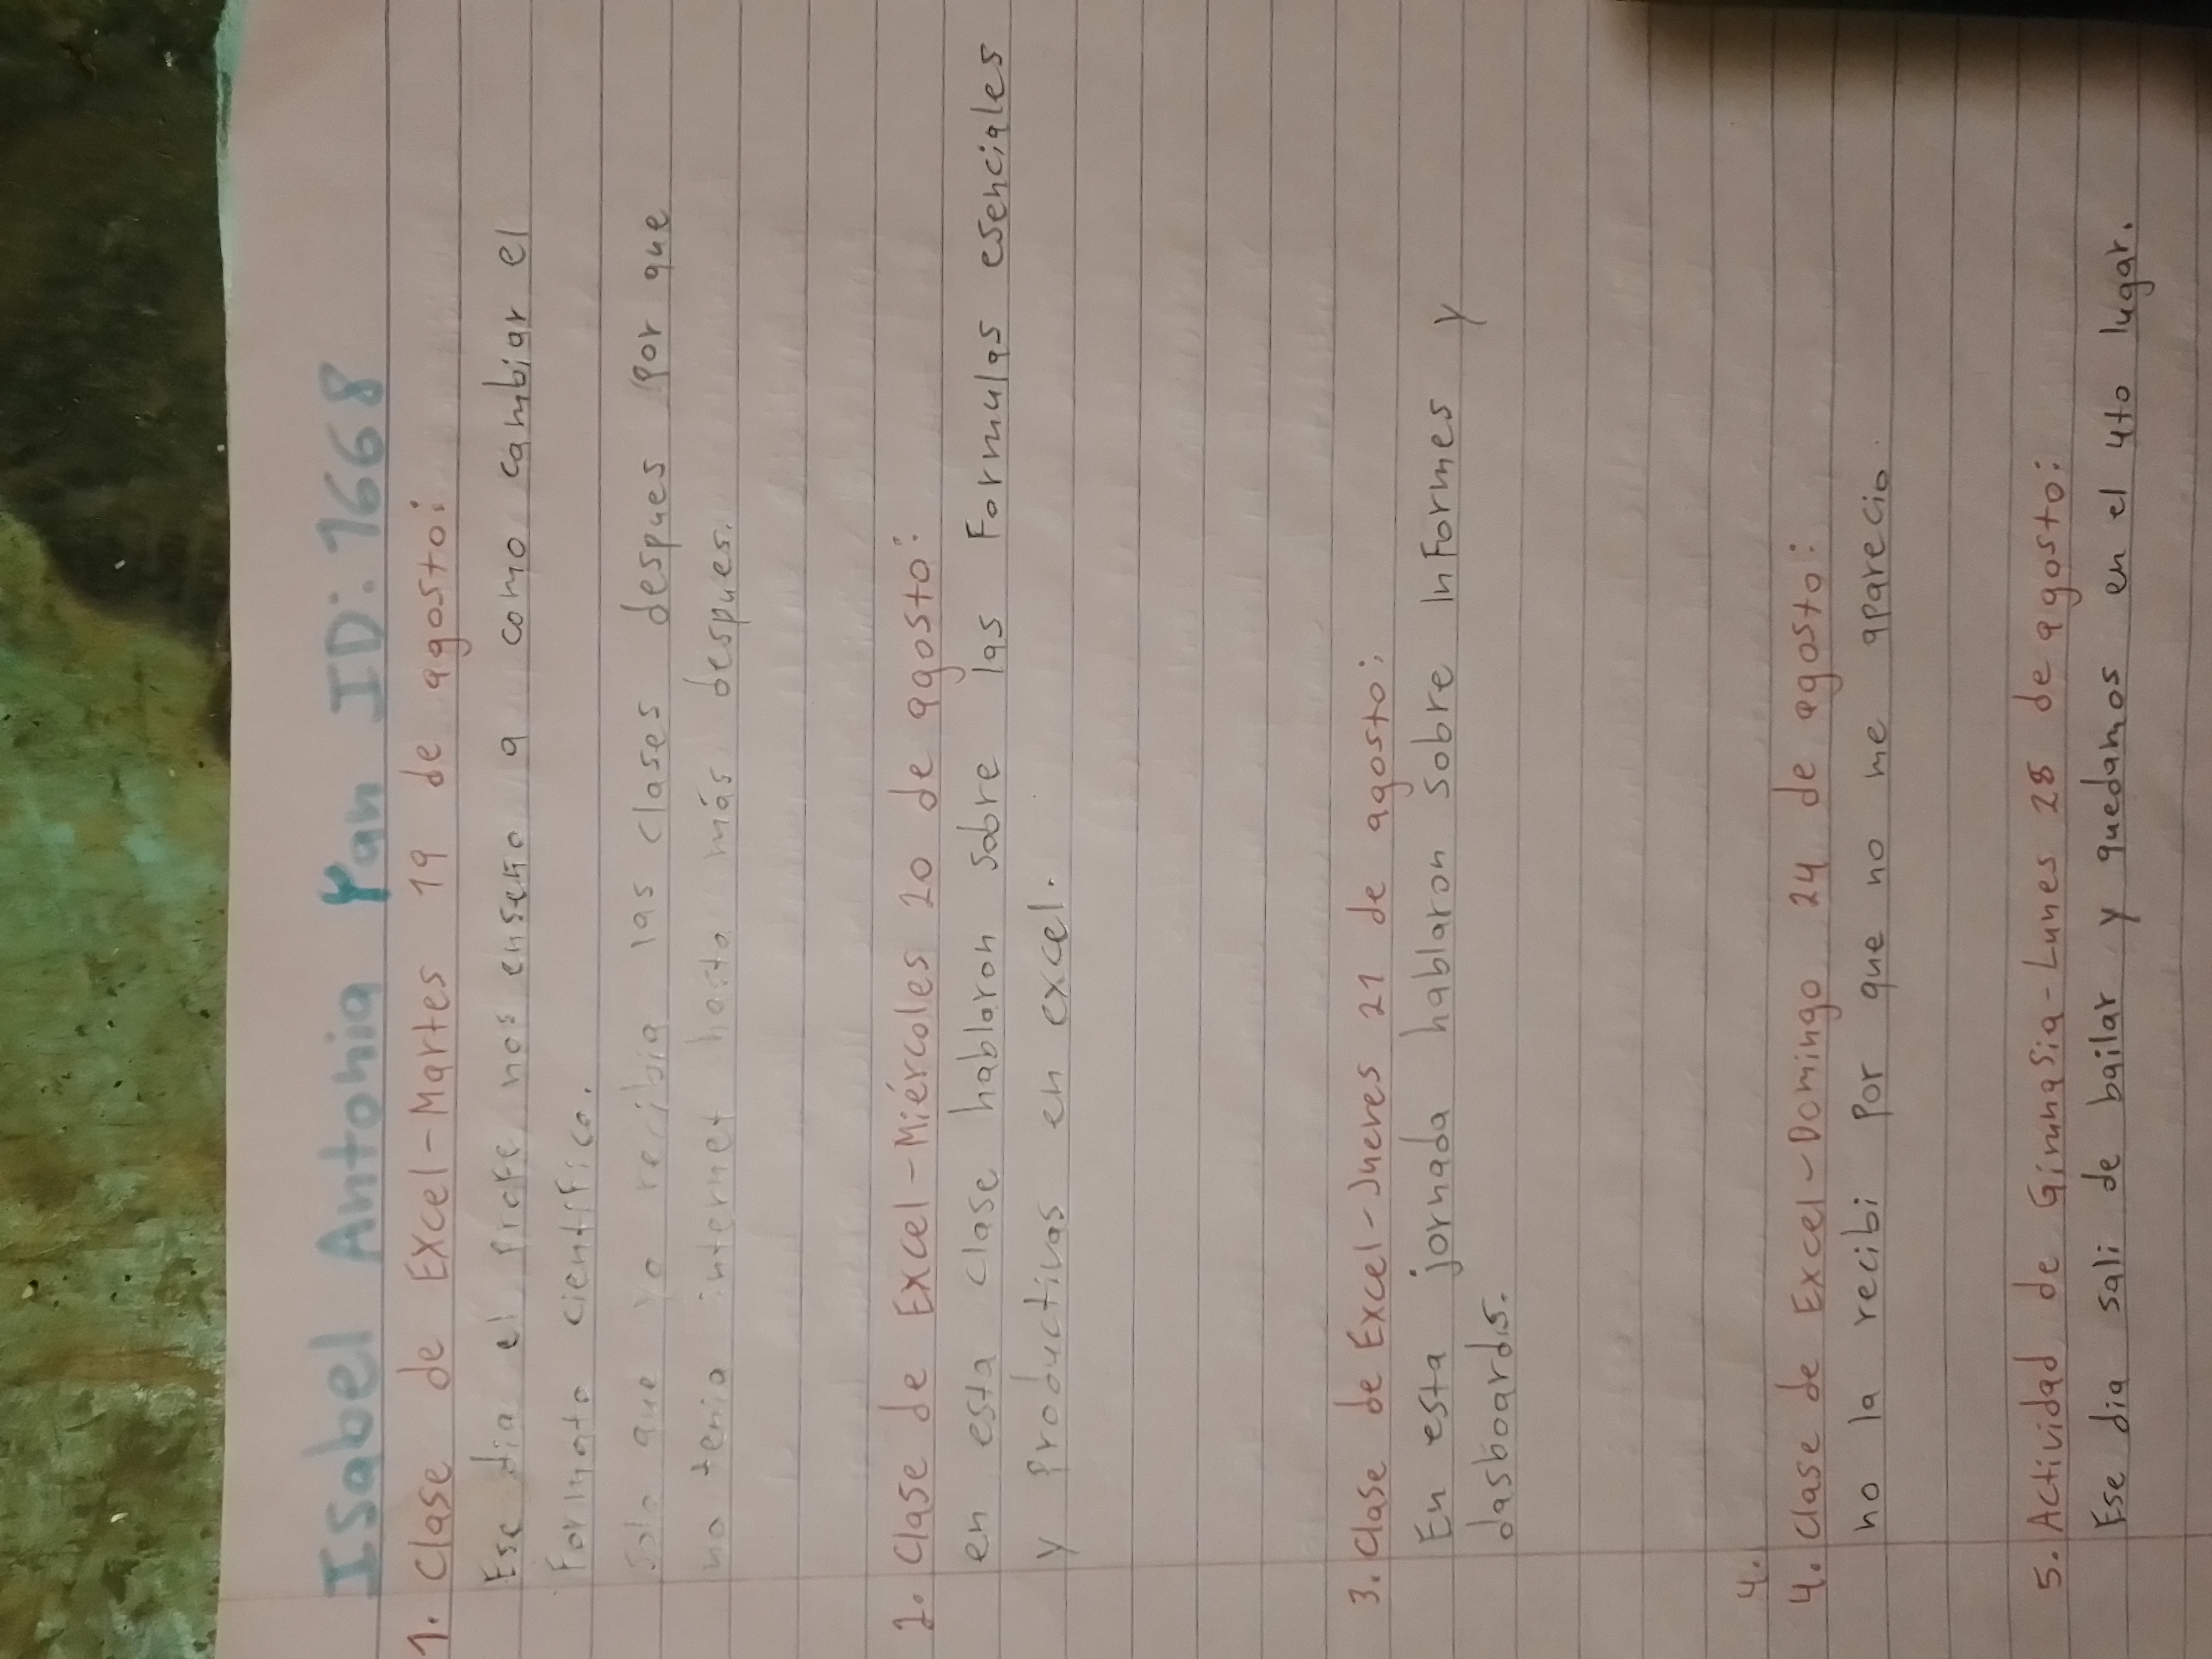 Isabel Antonia Yan ID: 1668
1. Clase de Excel-Martes 19 de agosto:
Ese dia el profe nos enseño a como cambiar el
Formato cientifico.
Solo que yo recibia las clases despues por que
no tenia internet hasta más despues.
2. Clase de Excel-Miércoles 20 de agosto:
en esta clase hablaron sobre las Formulas esenciales
y Productivas en excel.
3. Clase de Excel-Jueves 21 de agosto:
En esta jornada hablaron sobre Informes y
dasboards.
4.
4. Clase de Excel-Domingo 24 de agosto:
no la recibi Por que no me aparecio.
5. Actividad de Gimnasia-Lunes 25 de agosto:
Ese dia sali de bailar y quedamos en el 4to lugar.